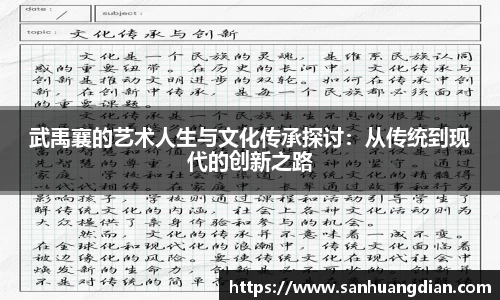 date: subject:
topic: 文化传承与创新
文化是一个民族的灵魂，是维系民族认同
感的重要纽带。在历史的长河中，文化传承与
创新是推动文明进步的双轮。如何在传承中创
新，在创新中传承，是每一个民族都必须面对
的重要课题。
武禹襄的艺术人生与文化传承探讨：从传统到现
代的创新之路
家庭、学校
以代代相传。在家庭中，长辈通过故事和行为
影响孩子，学校则通过课程和活动引导学生了
解传统文化的内涵，社会上各种文化活动则为
大众提供了亲身体验和参与的机会。
然而，文化的传承并不意味着一成不变。
在全球化和现代化的浪潮中，传统文化面临着
被边缘化的风险。要使传统文化在现代社会中
焕发新的生命力，创新
是对传统的简单
https://www.sanhuangdian.com